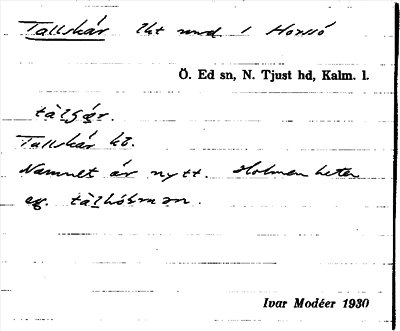 Tallskär lht und. i Horssö
Ö. Ed sn, N. Tjust hd, Kalm. l.
Tallskär kb.
Namnet är nytt. Holmen heter
eg.
Ivar Modéer 1930